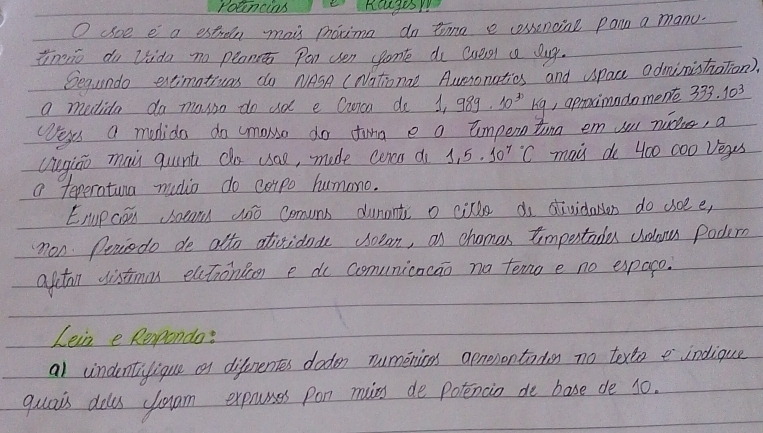 Potências e Raízes!!
O sol é a estrela mais próxima da terra e essencial para a manu-
tenção da Vida no planeta Por ser fonte de Calor e luz.
Segundo estimativas da NASA (National Aueronautics and space administration),
a medida da massa do sol e Cerca de 1,989.10³⁰ kg, aproximadamente 333.10³
Vezes a medida da massa da terra e a temperatura em seu núcleo, a
região mais quente do sol, mede cerca de 1,5.10⁷ °C mais de 400 000 Vezes
a teperatura média do corpo humano.
Erupções solares são comuns durante o ciclo de atividades do sol e,
nos Período de alta atividade solar, as chamas tempestades solares Podem
afetar sistimas eletrônicos e de comunicação na terra e no espaço.
Leia e Responda:
a) indentifique os diferentes dados numéricos apresentados no texto e indique
quais deles foram expressos Por meios de Potência de base de 10.